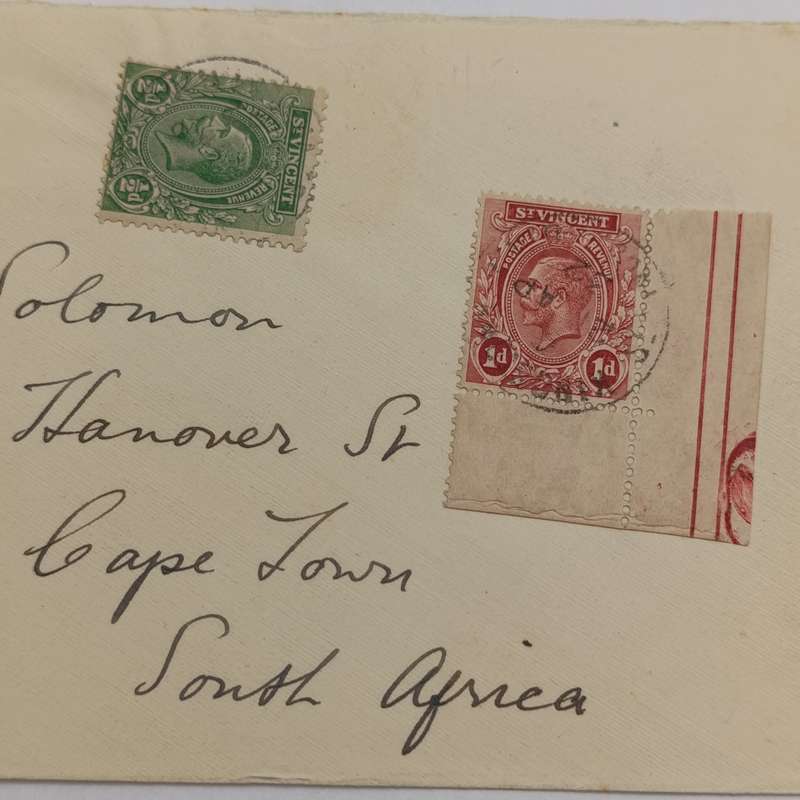 ½d
½d
ST VINCENT
POSTAGE
REVENUE
ST VINCENT
POSTAGE REVENUE
1d 1d
Solomon
Hanover St
Cape Town
South Africa